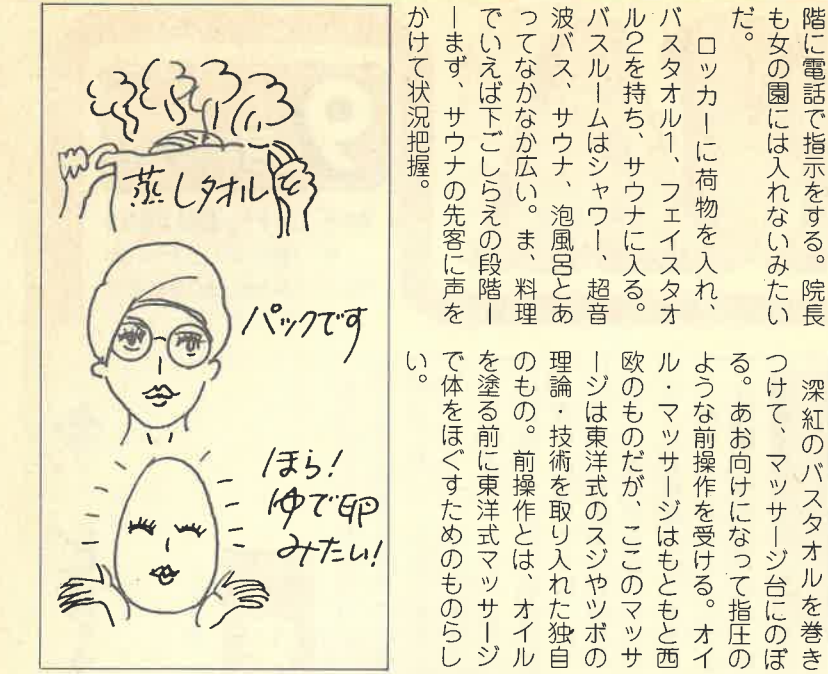 階に電話で指示をする。院長
も女の園には入れないみたい
だ。
ロッカーに荷物を入れ、
バスタオル1、フェイスタオ
ル2を持ち、サウナに入る。
バスルームはシャワー、超音
波バス、サウナ、泡風呂とあ
ってなかなか広い。ま、料理
でいえば下ごしらえの段階ー
ーまず、サウナの先客に声を
かけて状況把握。
深紅のバスタオルを巻き
つけて、マッサージ台にのぼ
る。あお向けになって指圧の
ような前操作を受ける。オイ
ル・マッサージはもともと西
欧のものだが、ここのマッサ
ージは東洋式のスジやツボの
理論・技術を取り入れた独自
のもの。前操作とは、オイル
を塗る前に東洋式マッサージ
で体をほぐすためのものらし
い。
蒸しタオル
パックです
ほら!
ゆで卵
みたい!